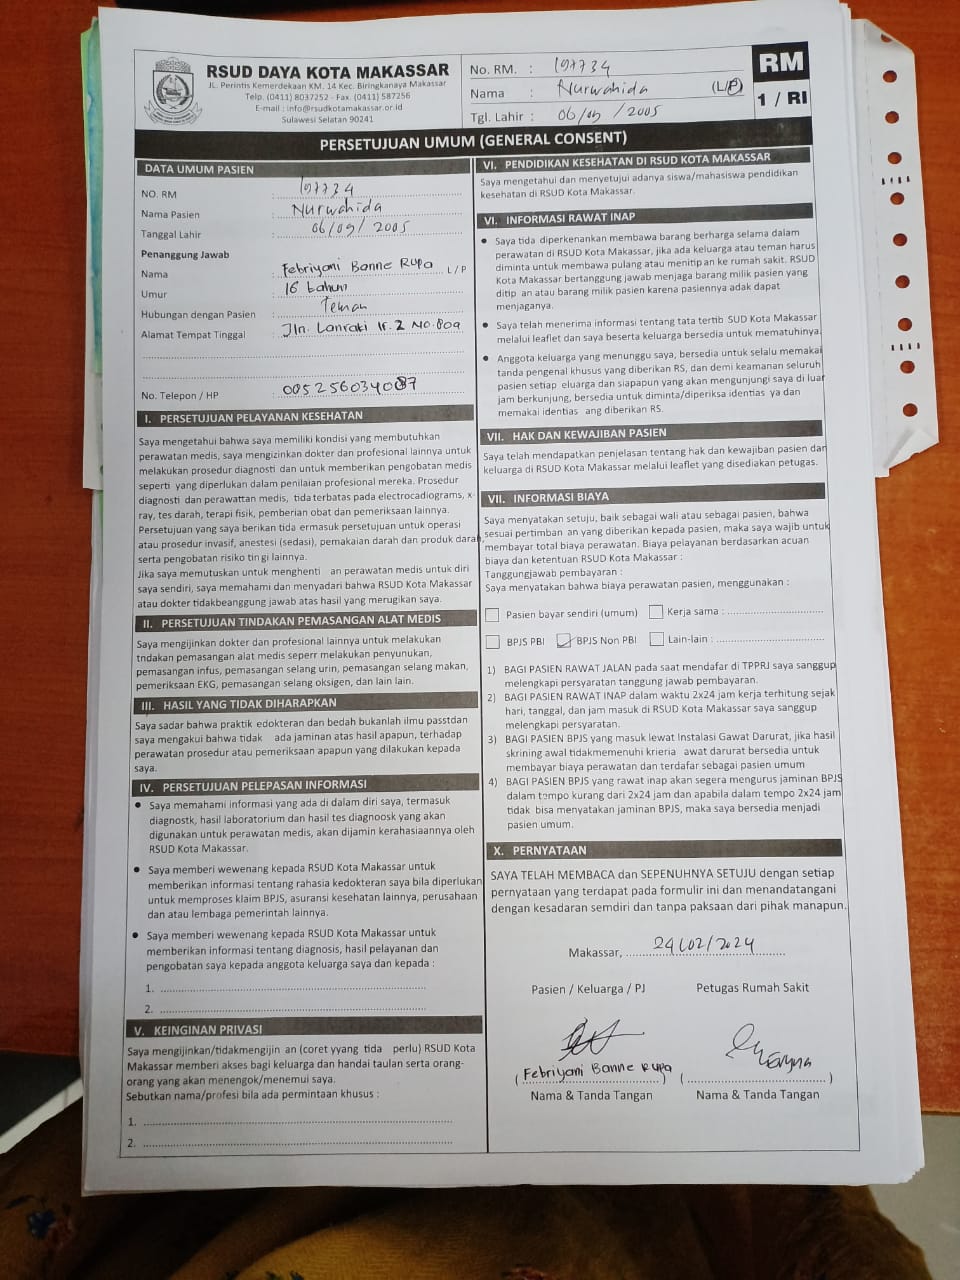 RSUD DAYA KOTA MAKASSAR
JL. Perintis Kemerdekaan KM. 14 Kec. Biringkanaya Makassar
Telp. (0411) 8037252 - Fax. (0411) 587256
E-mail : info@rsudkotamakassar.or.id
Sulawesi Selatan 90241
No. RM. : 197734
Nama : Nurwahida (L/P)
Tgl. Lahir : 06/09/2005
RM
1 / RI
PERSETUJUAN UMUM (GENERAL CONSENT)
DATA UMUM PASIEN
NO. RM : 197734
Nama Pasien : Nurwahida
Tanggal Lahir : 06/09/2005
Penanggung Jawab
Nama : Febriyani Banne Rupa L/P
Umur : 16 tahun
Hubungan dengan Pasien : Teman
Alamat Tempat Tinggal : Jln. Lanraki Ir. 2 No. 80a
No. Telepon / HP :
I. PERSETUJUAN PELAYANAN KESEHATAN
Saya mengetahui bahwa saya memiliki kondisi yang membutuhkan
perawatan medis, saya mengizinkan dokter dan profesional lainnya untuk
melakukan prosedur diagnosti dan untuk memberikan pengobatan medis
seperti yang diperlukan dalam penilaian profesional mereka. Prosedur
diagnosti dan perawattan medis, tida terbatas pada electrocadiograms, x-
ray, tes darah, terapi fisik, pemberian obat dan pemeriksaan lainnya.
Persetujuan yang saya berikan tida ermasuk persetujuan untuk operasi
atau prosedur invasif, anestesi (sedasi), pemakaian darah dan produk darah,
serta pengobatan risiko tin gi lainnya.
Jika saya memutuskan untuk menghenti an perawatan medis untuk diri
saya sendiri, saya memahami dan menyadari bahwa RSUD Kota Makassar
atau dokter tidakbeanggung jawab atas hasil yang merugikan saya.
II. PERSETUJUAN TINDAKAN PEMASANGAN ALAT MEDIS
Saya mengijinkan dokter dan profesional lainnya untuk melakukan
tndakan pemasangan alat medis seperr melakukan penyunukan,
pemasangan infus, pemasangan selang urin, pemasangan selang makan,
pemeriksaan EKG, pemasangan selang oksigen, dan lain lain.
III. HASIL YANG TIDAK DIHARAPKAN
Saya sadar bahwa praktik edokteran dan bedah bukanlah ilmu passtdan
saya mengakui bahwa tidak ada jaminan atas hasil apapun, terhadap
perawatan prosedur atau pemeriksaan apapun yang dilakukan kepada
saya.
IV. PERSETUJUAN PELEPASAN INFORMASI
• Saya memahami informasi yang ada di dalam diri saya, termasuk
diagnostk, hasil laboratorium dan hasil tes diagnoosk yang akan
digunakan untuk perawatan medis, akan dijamin kerahasiaannya oleh
RSUD Kota Makassar.
• Saya memberi wewenang kepada RSUD Kota Makassar untuk
memberikan informasi tentang rahasia kedokteran saya bila diperlukan
untuk memproses klaim BPJS, asuransi kesehatan lainnya, perusahaan
dan atau lembaga pemerintah lainnya.
• Saya memberi wewenang kepada RSUD Kota Makassar untuk
memberikan informasi tentang diagnosis, hasil pelayanan dan
pengobatan saya kepada anggota keluarga saya dan kepada :
1.
2.
V. KEINGINAN PRIVASI
Saya mengijinkan/tidakmengijin an (coret yyang tida perlu) RSUD Kota
Makassar memberi akses bagi keluarga dan handai taulan serta orang-
orang yang akan menengok/menemui saya.
Sebutkan nama/profesi bila ada permintaan khusus :
1.
2.
VI. PENDIDIKAN KESEHATAN DI RSUD KOTA MAKASSAR
Saya mengetahui dan menyetujui adanya siswa/mahasiswa pendidikan
kesehatan di RSUD Kota Makassar.
VI. INFORMASI RAWAT INAP
• Saya tida diperkenankan membawa barang berharga selama dalam
perawatan di RSUD Kota Makassar, jika ada keluarga atau teman harus
diminta untuk membawa pulang atau menitipan ke rumah sakit. RSUD
Kota Makassar bertanggung jawab menjaga barang milik pasien yang
ditip an atau barang milik pasien karena pasiennya adak dapat
menjaganya.
• Saya telah menerima informasi tentang tata tertib SUD Kota Makassar
melalui leaflet dan saya beserta keluarga bersedia untuk mematuhinya.
• Anggota keluarga yang menunggu saya, bersedia untuk selalu memakai
tanda pengenal khusus yang diberikan RS, dan demi keamanan seluruh
pasien setiap eluarga dan siapapun yang akan mengunjungi saya di luar
jam berkunjung, bersedia untuk diminta/diperiksa identias ya dan
memakai identias ang diberikan RS.
VII. HAK DAN KEWAJIBAN PASIEN
Saya telah mendapatkan penjelasan tentang hak dan kewajiban pasien dan
keluarga di RSUD Kota Makassar melalui leaflet yang disediakan petugas.
VII. INFORMASI BIAYA
Saya menyatakan setuju, baik sebagai wali atau sebagai pasien, bahwa
sesuai pertimban an yang diberikan kepada pasien, maka saya wajib untuk
membayar total biaya perawatan. Biaya pelayanan berdasarkan acuan
biaya dan ketentuan RSUD Kota Makassar :
Tanggungjawab pembayaran :
Saya menyatakan bahwa biaya perawatan pasien, menggunakan :
Pasien bayar sendiri (umum) Kerja sama :
BPJS PBI BPJS Non PBI Lain-lain :
1) BAGI PASIEN RAWAT JALAN pada saat mendafar di TPPRJ saya sanggup
melengkapi persyaratan tanggung jawab pembayaran.
2) BAGI PASIEN RAWAT INAP dalam waktu 2x24 jam kerja terhitung sejak
hari, tanggal, dan jam masuk di RSUD Kota Makassar saya sanggup
melengkapi persyaratan.
3) BAGI PASIEN BPJS yang masuk lewat Instalasi Gawat Darurat, jika hasil
skrining awal tidakmemenuhi krieria awat darurat bersedia untuk
membayar biaya perawatan dan terdafar sebagai pasien umum
4) BAGI PASIEN BPJS yang rawat inap akan segera mengurus jaminan BPJS
dalam tempo kurang dari 2x24 jam dan apabila dalam tempo 2x24 jam
tidak bisa menyatakan jaminan BPJS, maka saya bersedia menjadi
pasien umum.
X. PERNYATAAN
SAYA TELAH MEMBACA dan SEPENUHNYA SETUJU dengan setiap
pernyataan yang terdapat pada formulir ini dan menandatangani
dengan kesadaran semdiri dan tanpa paksaan dari pihak manapun.
Makassar, 29/02/2024
Pasien / Keluarga / PJ Petugas Rumah Sakit
(Febriyani Banne Rupa) ( )
Nama & Tanda Tangan Nama & Tanda Tangan